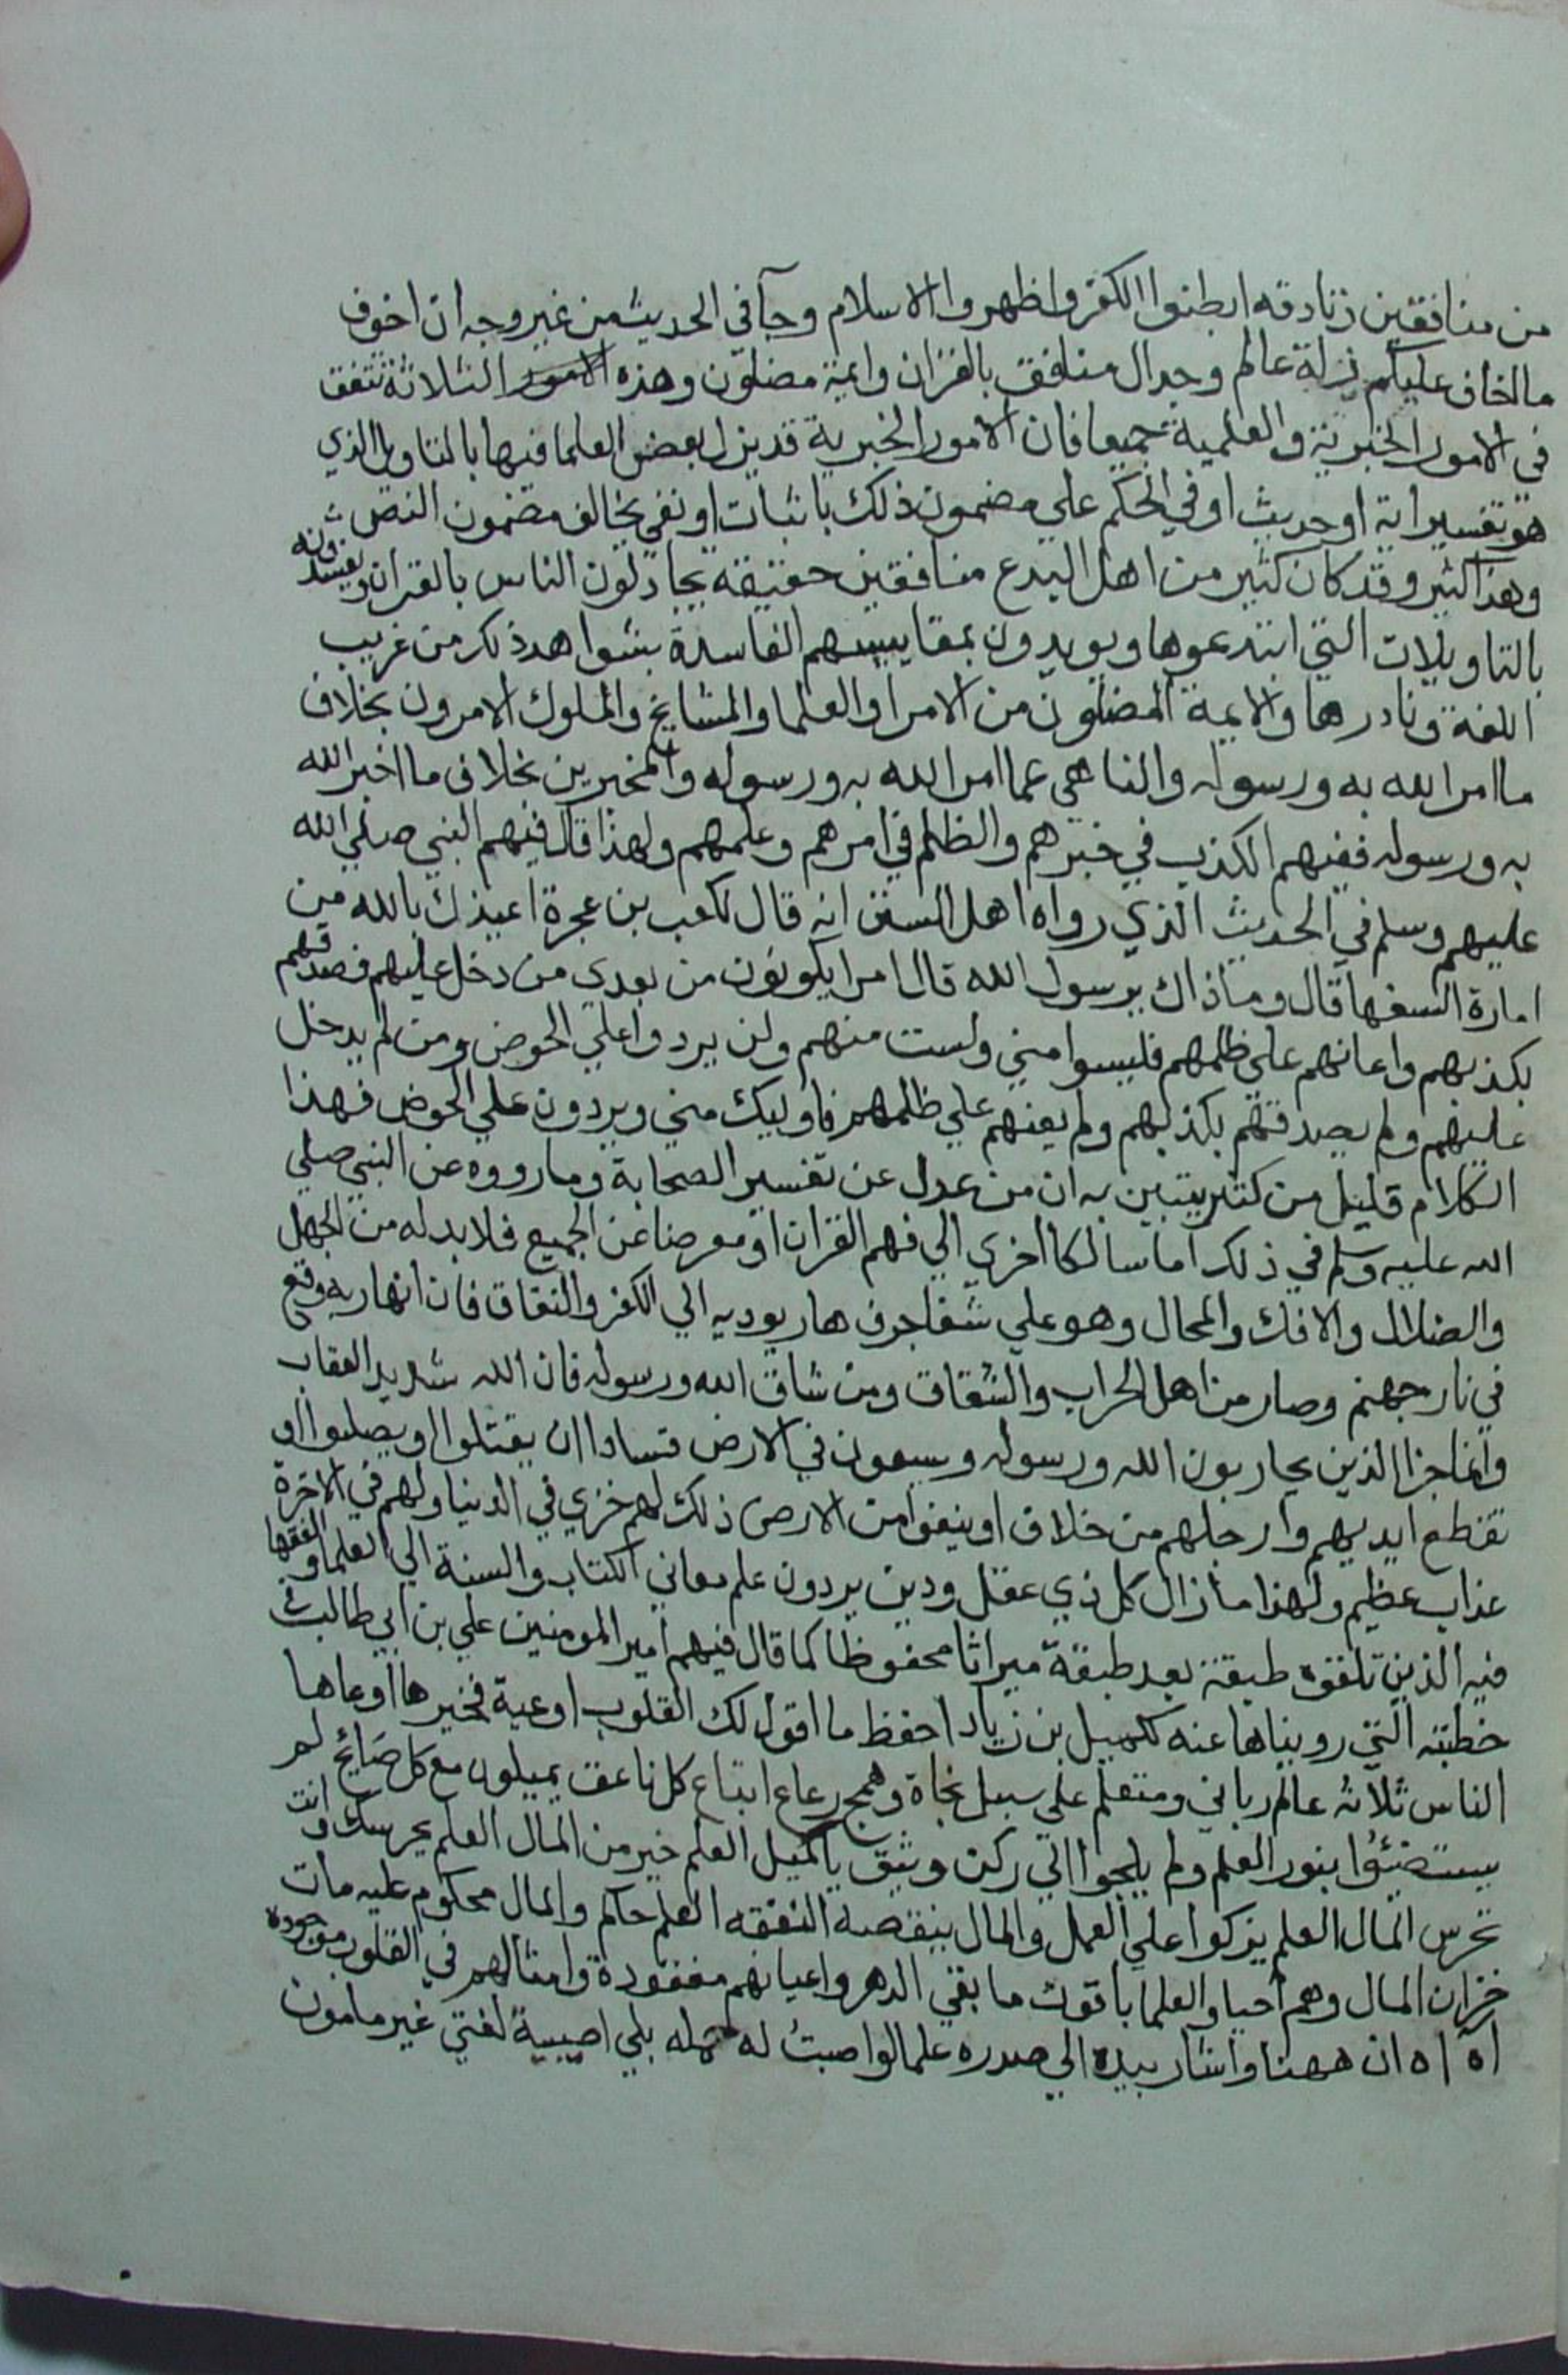 من منافقين زنادقه ابطنوا الكفر واظهروا الاسلام وجآ في الحديث من غير وجه ان اخوف
ما اخاف عليكم زلة عالم وجدال منافق بالقران وايمة مضلون وهذه الامور الثلاثة تتفق
في الامور الخبرية والعلمية جميعا فان الامور الخبرية قد يزل بعض العلما فيها بالتاويل الذي
هو تفسير اية او حديث او في الحكم علي مضمون ذلك باثبات او نفي يخالف مضمون النص
وهذا كثير وقد كان كثير من اهل البدع منافقين حقيقه يجادلون الناس بالقران ويفسدونه
بالتاويلات التي ابتدعوها ويويدون بمقاييسهم الفاسدة بشواهد ذكر من غريب
اللغة ونادرها والايمة المضلون من الامرا والعلما والمشايخ والملوك الامرون بخلاف
ما امر الله به ورسوله والناهي عما امر الله به ورسوله والمخبرين بخلاف ما اخبر الله
به ورسوله ففيهم الكذب في خبرهم والظلم في امرهم وعلمهم ولهذا قال فيهم النبي صلي الله
عليهم وسلم في الحديث الذي رواه اهل السنن انه قال لكعب بن عجرة اعيذك بالله من
امارة السفها قال وما ذاك يرسول الله قال امرا يكونون من بعدي من دخل عليهم فصدقهم
بكذبهم واعانهم علي ظلمهم فليسوا مني ولست منهم ولن يردوا علي الحوض ومن لم يدخل
عليهم ولم يصدقهم بكذبهم ولم يعنهم علي ظلمهم فاوليك مني ويردون علي الحوض فهذا
الكلام قليل من كثير يتبين به ان من عدل عن تفسير الصحابة وما رووه عن النبي صلي
الله عليه وسلم في ذلك اما سالكا اخري الي فهم القران او معرضا عن الجميع فلا بد له من الجهل
والضلال والافك والمحال وهو علي شفا جرف هار يوديه الي الكفر والنفاق فان انهار به وقع
في نار جهنم وصار من اهل الحراب والشقاق ومن شاق الله ورسوله فان الله شديد العقاب
وانما جزا الذين يحاربون الله ورسوله ويسعون في الارض فسادا ان يقتلوا او يصلبوا او
تقطع ايديهم وارجلهم من خلاف او ينفوا من الارض ذلك لهم خزي في الدنيا ولهم في الاخرة
عذاب عظيم ولهذا ما زال كل ذي عقل ودين يردون علم معاني الكتاب والسنة الي العلما والفقها
فيه الذين تلقوه طبقة بعد طبقة ميراثا محفوظا كما قال فيهم امير المومنين علي بن ابي طالب في
خطبته التي رويناها عنه لكميل بن زياد احفظ ما اقول لك القلوب اوعية فخيرها اوعاها
الناس ثلاثه عالم رباني ومتعلم علي سبيل نجاة وهمج رعاع اتباع كل ناعق يميلون مع كل صايح لم
يستضيئوا بنور العلم ولم يلجوا الي ركن وثيق يا كميل العلم خير من المال العلم يحرسك وانت
تحرس المال العلم يزكوا علي العمل والمال ينقصه النفقه العلم حاكم والمال محكوم عليه مات
خزان المال وهم احيا والعلما باقون ما بقي الدهر واعيانهم مفقودة وامثالهم في القلوب موجودة
اه اه ان ههنا واشار بيده الي صدره علما لو اصبت له حمله بلي اصيبه لفتي غير مامون